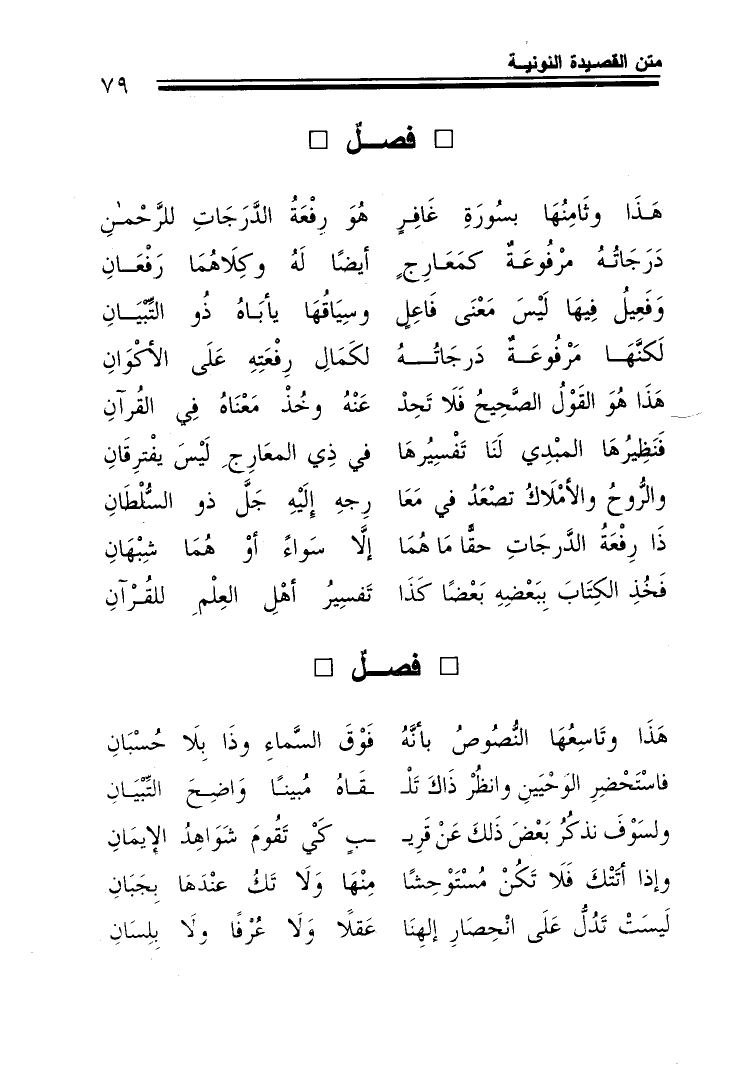 متن القصيدة النونيـة
٧٩
□ فصـــلٌ □
هَـذَا وثَامِنُهَا بسُورَةِ غَافِـرٍ هُوَ رِفْعَةُ الدَّرَجَاتِ للرَّحْمٰنِ
دَرَجَاتُـهُ مرْفُوعَـةٌ كمَعَـارِجٍ أيضًا لَهُ وكِلَاهُمَا رَفْعَـانِ
وَفَعِيلُ فِيهَا لَيْسَ مَعْنَى فَاعِلٍ وسِيَاقُهَا يأبَـاهُ ذُو التِّبْيَـانِ
لَكنَّهَـا مَرْفُوعَـةٌ دَرجَاتُـــهُ لكَمَالِ رِفْعَتِهِ عَلَى الأكْوَانِ
هَذَا هُوَ القَوْلُ الصَّحِيحُ فَلَا تَحِدْ عَنْهُ وخُذْ مَعْنَاهُ فِي القُرآنِ
فَنَظِيرُهَا المبْدِي لَنَا تَفْسِيرُهَا في ذِي المعَارِجِ لَيْسَ يفْترِقَانِ
والرُّوحُ والأمْلَاكُ تصْعَدُ في مَعَا رِجهِ إلَيْهِ جَلَّ ذو السُّلْطَانِ
ذَا رِفْعَةُ الدَّرجَاتِ حقًّا مَا هُمَا إلَّا سَواءً أوْ هُمَا شِبْهَانِ
فَخُذِ الكِتَابَ بِبَعْضِهِ بَعْضًا كَذَا تَفسِيرُ أهْلِ العِلْمِ للقُـرْآنِ
□ فصـــلٌ □
هَذَا وتَاسِعُهَا النُّصُوصُ بأنَّهُ فَوْقَ السَّماءِ وذَا بِلَا حُسْبَانِ
فاسْتَحْضِرِ الوَحْيَينِ وانظُرْ ذَاكَ تَلْـ ـقَـاهُ مُبينًـا وَاضِحَ التِّبْيَـانِ
ولسَوْفَ نذكُرُ بَعْضَ ذَلكَ عَنْ قَريـ ـبٍ كَيْ تَقُومَ شَوَاهِدُ الإيمَانِ
وإذا أتَتْكَ فَلَا تكُنْ مُسْتَوْحِشًا مِنْهَا وَلَا تَكُ عنْدَهَا بِجَبَانِ
لَيسَتْ تَدُلُّ عَلَى انْحِصَارِ إلهنَا عَقلًا وَلَا عُرْفًا ولَا بِلِسَانِ